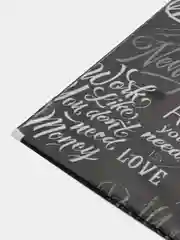 New
Work
Like
You don't
need
Money
you
need
LOVE